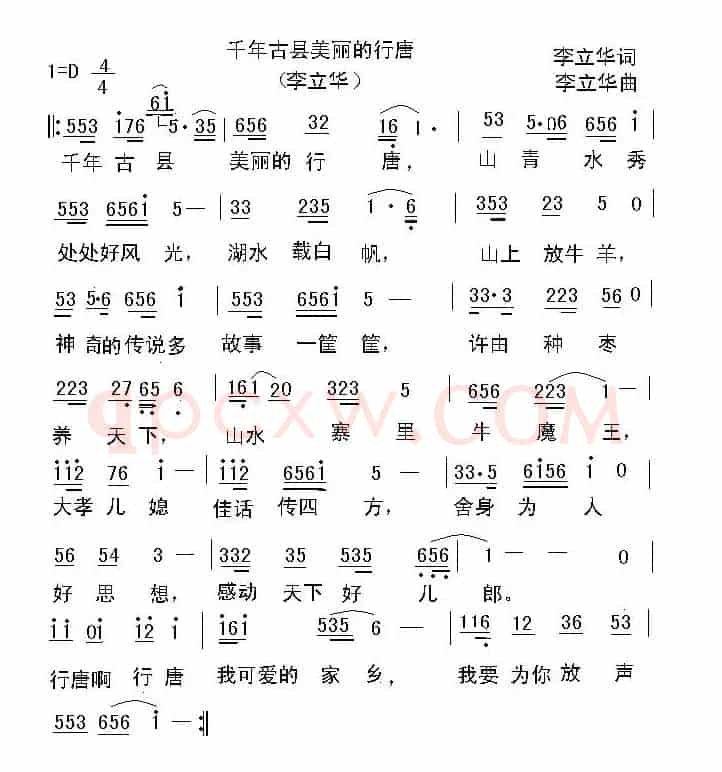 千年古县美丽的行唐
1=D 4/4 (李立华) 李立华词
李立华曲
‖: 553 i76 6i 5·35 | 656 32 16 1· | 53 5·06 656 i |
千年 古 县 美丽的 行 唐, 山 青 水 秀
553 656i 5— | 33 235 1·6 | 353 23 5 0 |
处处好风 光, 湖水 载白 帆, 山上 放牛 羊,
53 5·6 656 i | 553 656i 5 — | 33·3 223 56 0 |
神 奇的传说多 故事 一筐 筐, 许由 种 枣
223 27 65 6 | 161 20 323 5 | 656 223 1— |
养 天下, 山水 寨 里 牛 魔 王,
qpcxw.COM
ii2 76 i — | ii2 656i 5 — | 33·5 6i56 i 0 |
大孝 儿 媳 佳话 传四 方, 舍身 为 人
56 54 3 — | 332 35 535 656 | 1 — — 0 |
好 思 想, 感动 天下 好 儿 郎。
ii 0i i2 i | i6i 535 6 — | 116 12 36 53 |
行唐啊 行 唐 我可爱的 家 乡, 我要 为你 放 声
553 656 i — :‖